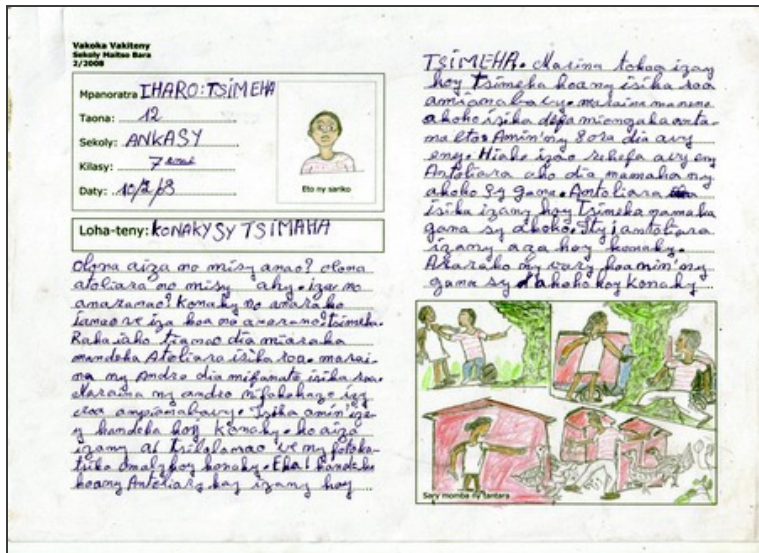 Vakoka Vakiteny
Sekoly Maitso Bara
2/2008
Mpanoratra IHARO: TSIMEHA
Taona: 12
Sekoly: ANKASY
Kilasy: 7 eme
Daty: 10/2/08
Eto ny sariko
Loha-teny: KONAKY SY TSIMAHA
Olona aiza no misy anao? olona
atoliara no misy ahy. iza no
anaranao? Konaky no anarako
ianao ve iza koa no anarano? Tsimeha.
Raha izho tianao dia miaraka
mandeha Atoliara isika roa. marai-
na ny Andro dia mifamato isika roa.
Maraina ny andro nifakahaza izy
roa ampianabavy. Isika amin'iza-
y handeha hoy Konaky. ho aiza
izany a! tsilolanao ve ny fotoka-
hoy Konaky. Eka! handeha
hoany Antoliara kay izany hoy
TSIMEHA. Marina tokoa izany
hoy Tsimeha hoany isika roa
amianabavy. maraina maneno
akoho isika dia miongaka
Amin'ny 8 ora dia avy
eny. Hiako izao rehefa avy eny
Antoliara aho dia mamaha ny
akoho sy gana. Antoliara
isika izany hoy Tsimeha mamaha
gana sy akoho. antoliara
izany aza hoy Konaky.
Ararako ny vary hoamin'ny
gana sy akoho hoy Konaky
Sary momba ny tantara